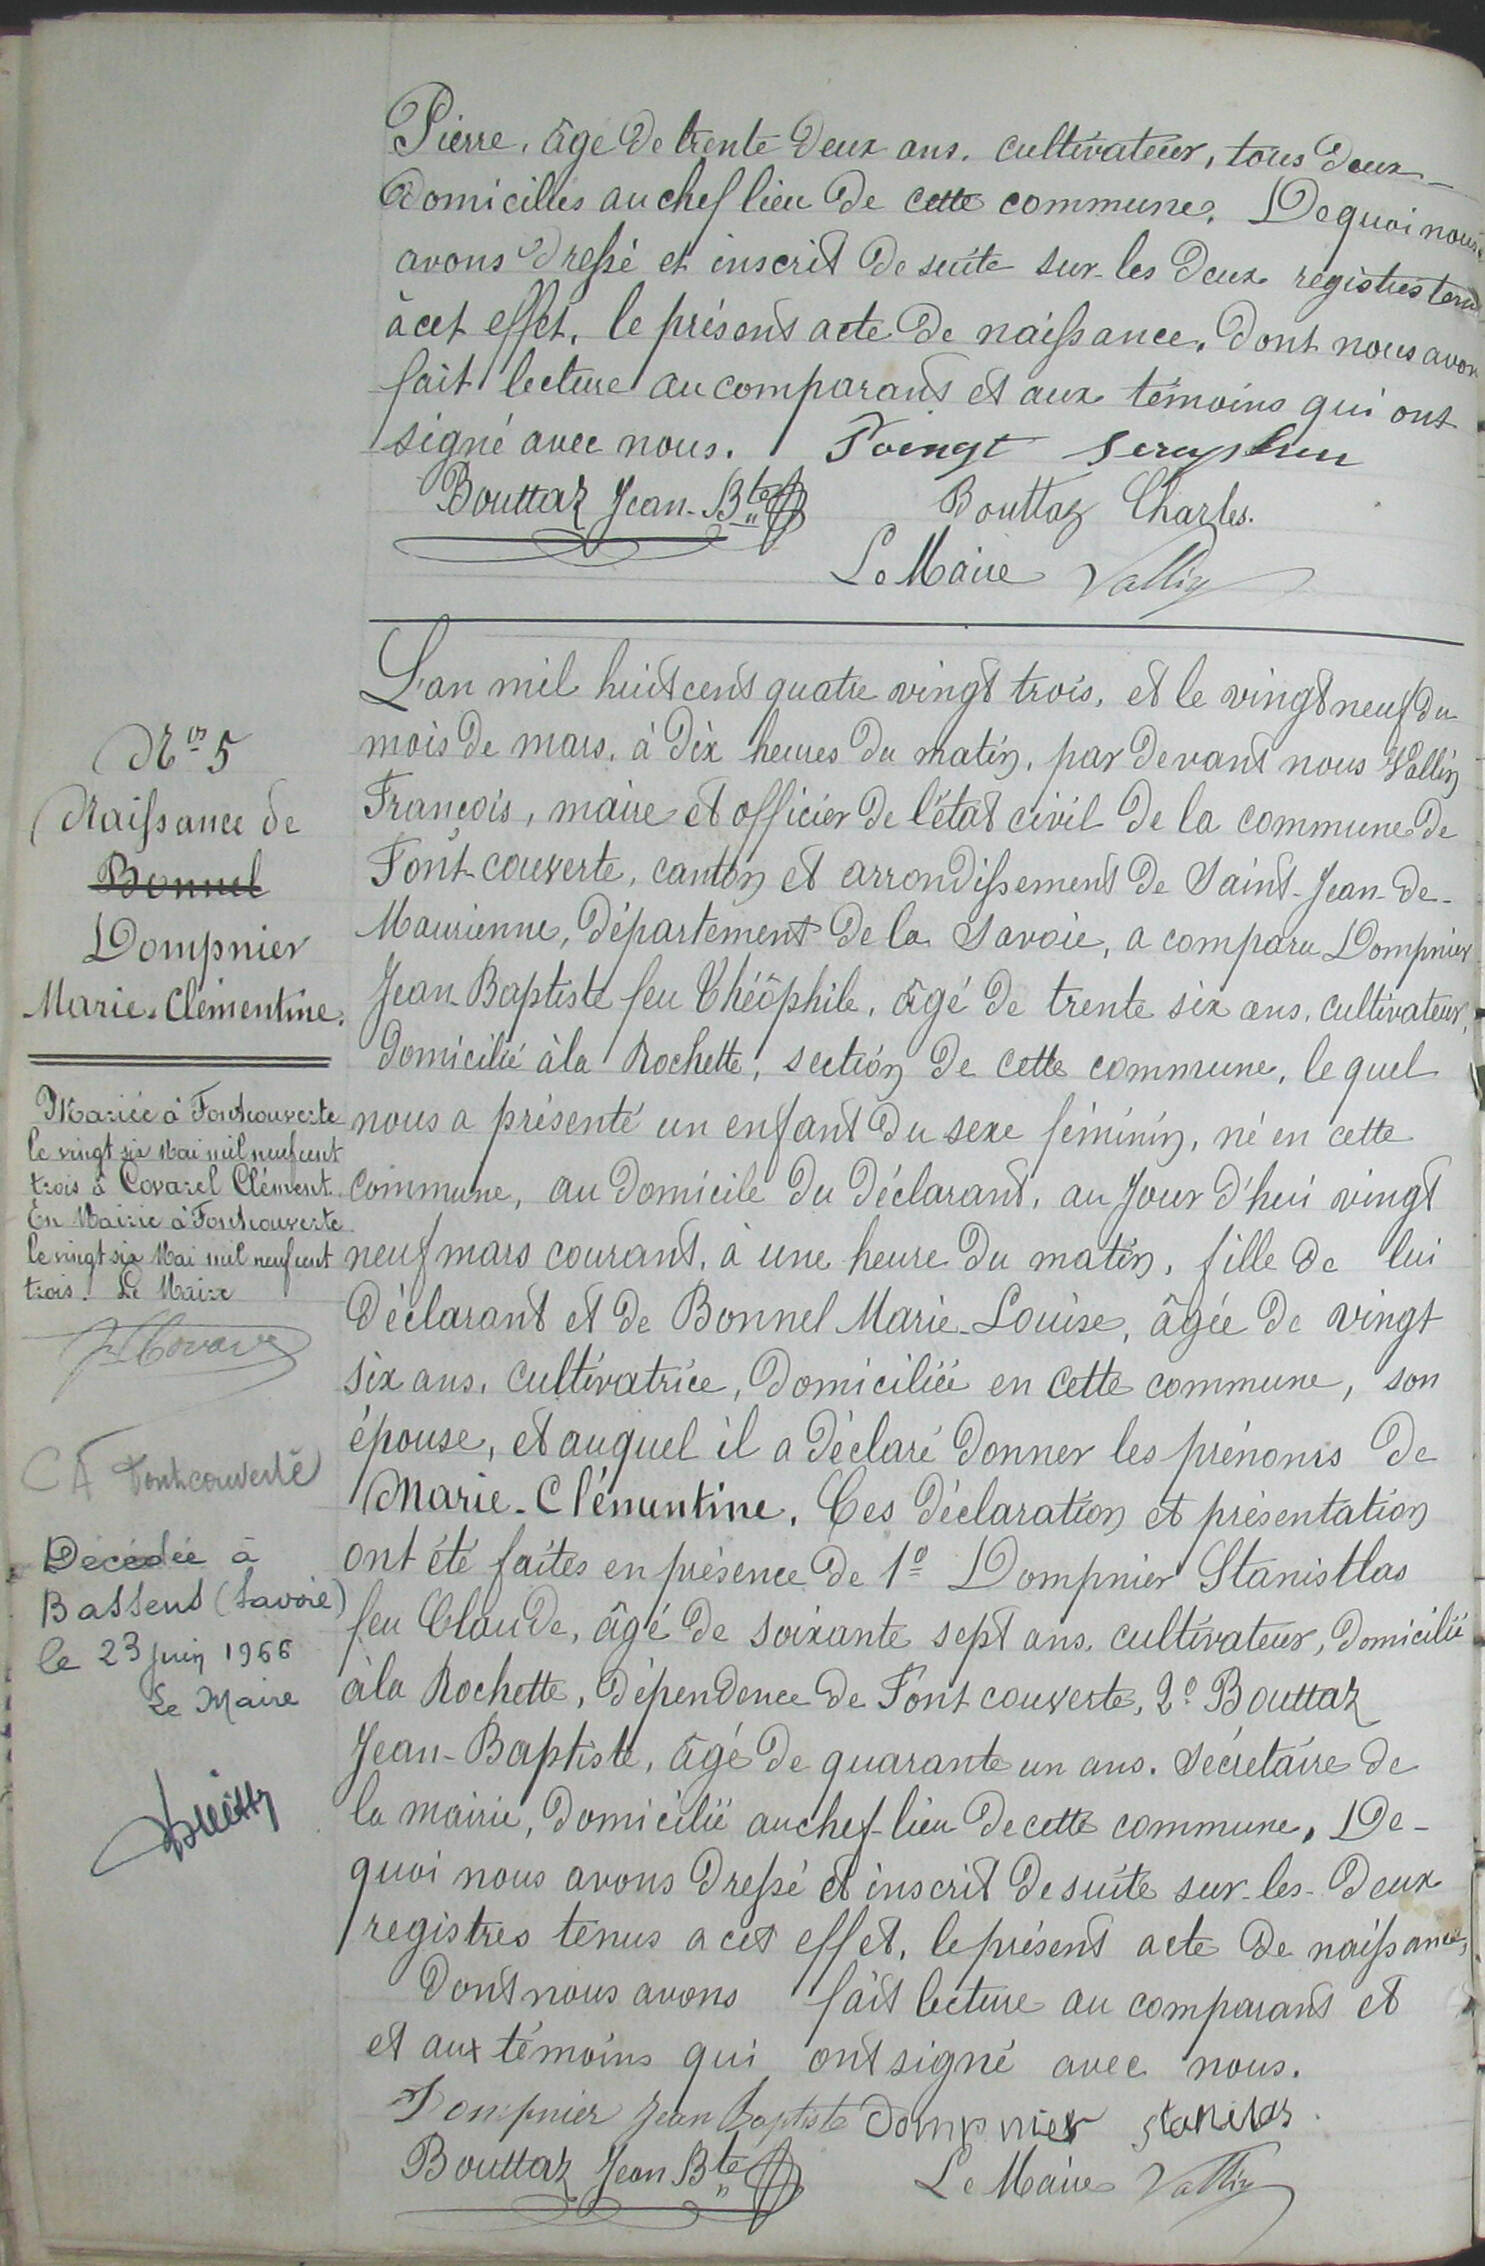 Pierre, âgé de trente deux ans, cultivateur, tous deux
domiciliés au chef lieu de cette commune. De quoi nous
avons dressé et inscrit de suite sur les deux registres tenus
à cet effet, le présent acte de naissance, dont nous avons
fait lecture au comparant et aux témoins qui ont
signé avec nous. Poingt Seraphin
Bouttaz Jean-Bte Bouttaz Charles.
Le Maire Vallin
N° 5
Naissance de
Bonnel
Dompnier
Marie-Clémentine.
Mariée à Fontcouverte
le vingt six Mai mil neuf cent
trois à Covarel Clément.
En Mairie à Fontcouverte
le vingt six Mai mil neuf cent
trois. Le Maire
C A Fontcouverte
Décédée à
Bassens (Savoie)
le 23 juin 1966
Le Maire
L'an mil huit cent quatre vingt trois, et le vingt neuf du
mois de mars, à dix heures du matin, par devant nous Vallin
François, maire et officier de l'état civil de la commune de
Font-couverte, canton et arrondissement de Saint-Jean-de-
Maurienne, département de la Savoie, a comparu Dompnier
Jean-Baptiste feu Théophile, âgé de trente six ans, cultivateur,
domicilié à la Rochette, section de cette commune, lequel
nous a présenté un enfant du sexe féminin, né en cette
commune, au domicile du déclarant, au jour d'hui vingt
neuf mars courant, à une heure du matin, fille de lui
déclarant et de Bonnel Marie-Louise, âgée de vingt
six ans, cultivatrice, domiciliée en cette commune, son
épouse, et auquel il a déclaré donner les prénoms de
Marie-Clémentine. Ces déclaration et présentation
ont été faites en présence de 1° Dompnier Stanisllas
feu Claude, âgé de soixante sept ans, cultivateur, domicilié
à la Rochette, dépendence de Font couverte, 2° Bouttaz
Jean-Baptiste, âgé de quarante un ans, sécretaire de
la mairie, domicilié au chef-lieu de cette commune. De-
quoi nous avons dressé et inscrit de suite sur-les-deux
registres tenus a cet effet, le présent acte de naissance,
dont nous avons fait lecture au comparant et
et aux témoins qui ont signé avec nous.
Dompnier Jean Baptiste Dompnier Stanilas.
Bouttaz Jean Bte Le Maire Vallin